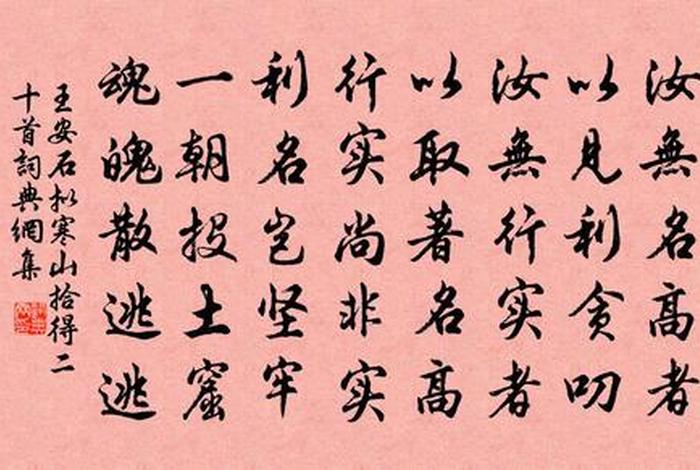 汝無名高者
以見利貪叨
汝無行实者
以取著名高
行实尚非实
利名岂坚牢
一朝投土窑
魂魄散逃逃
王安石拟寒山拾得二
十首詞典網集